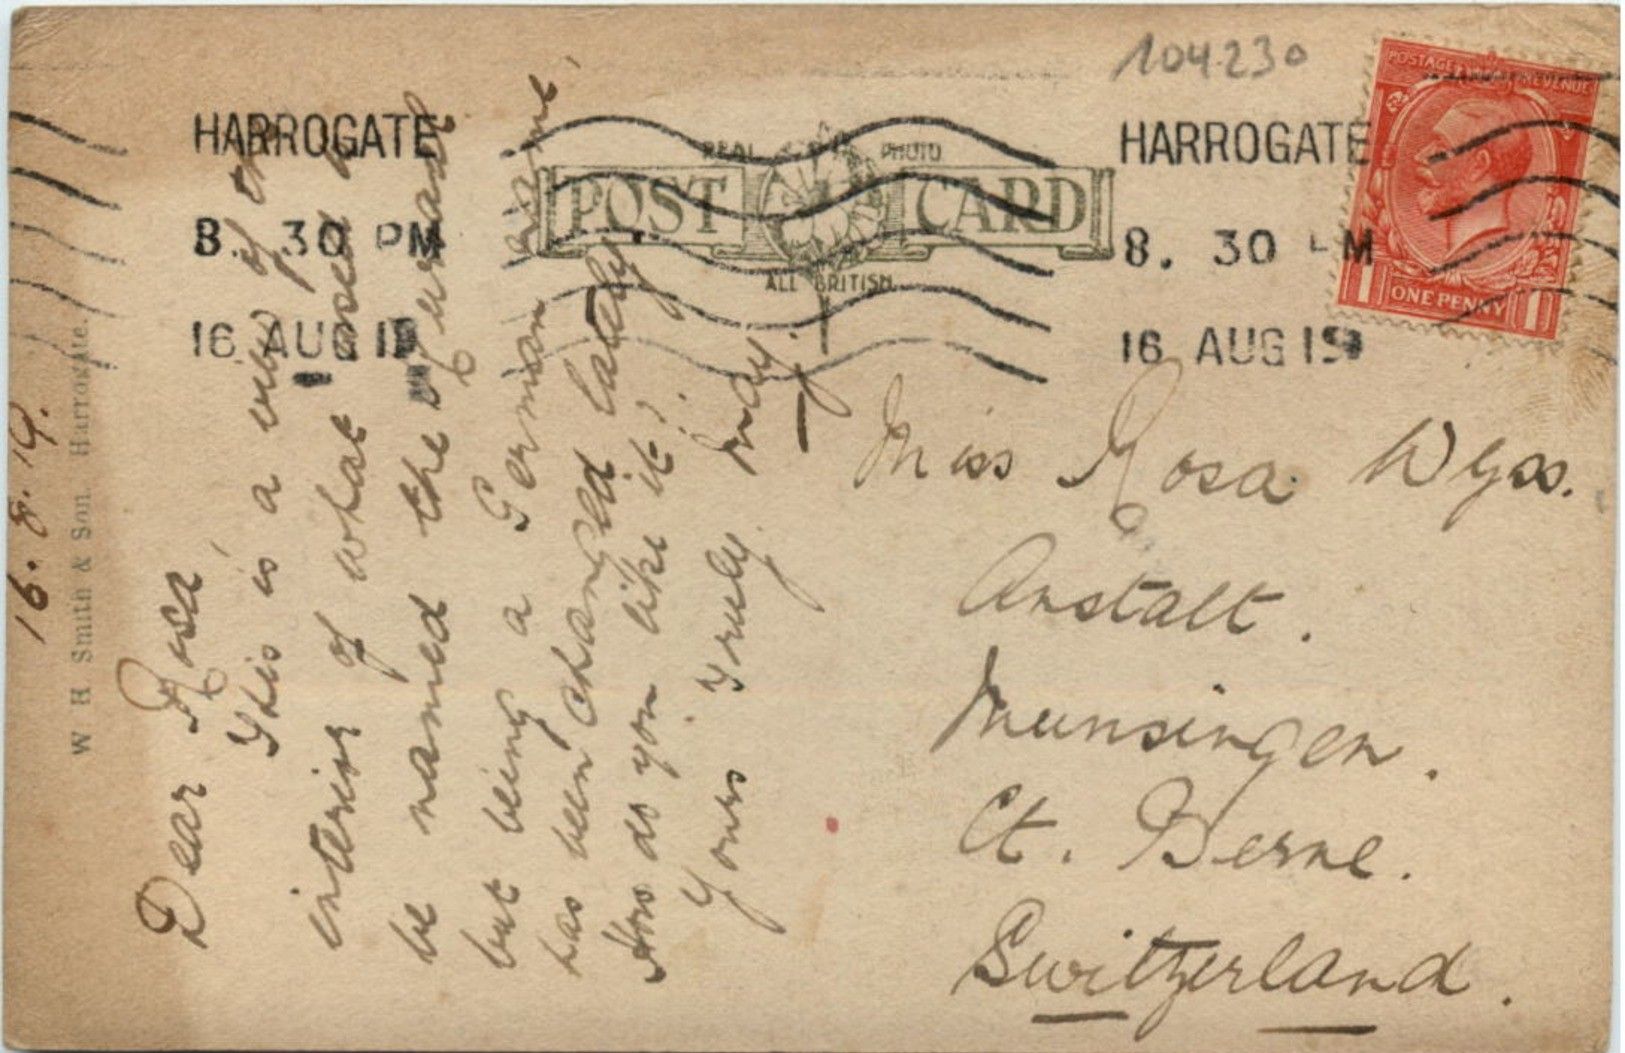 104230
HARROGATE
8. 30 PM
16 AUG 19
HARROGATE
8. 30 PM
16 AUG 19
POSTAGE REVENUE
1 ONE PENNY 1
REAL PHOTO
POST CARD
ALL BRITISH
W H Smith & Son. Harrogate.
16.8.19.
Dear Rosa,
This is a view of the
interior of what used to
be named the
but being a German name,
has been changed lately
How do you like it?
Yours truly
May.
Miss Rosa Wyss.
Anstalt.
Munsingen.
Ct. Berne.
Switzerland.